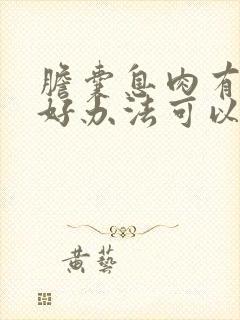 胆囊息肉有
好办法可以
黄艺